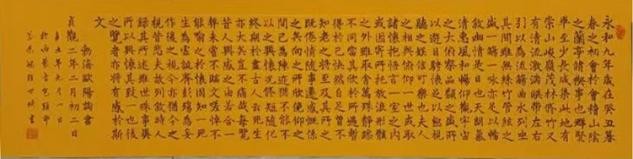 永和九年歲在癸丑暮
春之初會於會稽山陰
之蘭亭脩稧事也群賢
畢至少長咸集此地有
崇山峻嶺茂林脩竹又
有清流激湍暎帶左右
引以為流觴曲水列坐
其間雖無絲竹管絃之
盛一觴一詠亦足以暢
敘幽情是日也天朗氣
清惠風和暢仰觀宇宙
之大俯察品類之盛所
以遊目騁懷足以極視
聽之娛信可樂也夫人
之相與俯仰一世或取
諸懷抱悟言一室之內
或因寄所託放浪形骸
之外雖趣舍萬殊靜躁
不同當其欣於所遇暫
得於己快然自足曾不
知老之將至及其所之
既倦情隨事遷感慨係
之矣向之所欣俛仰之
間已為陳迹猶不能不
以之興懷況脩短隨化
終期於盡古人云死生
亦大矣豈不痛哉每覽
昔人興感之由若合一
契未嘗不臨文嗟悼不
能喻之於懷固知一死
生為虛誕齊彭殤為妄
作後之視今亦猶今之
視昔悲夫故列敘時人
錄其所述雖世殊事異
所以興懷其致一也後
之覽者亦將有感於斯
文
貞觀二年二月初二日
渤海歐陽詢書